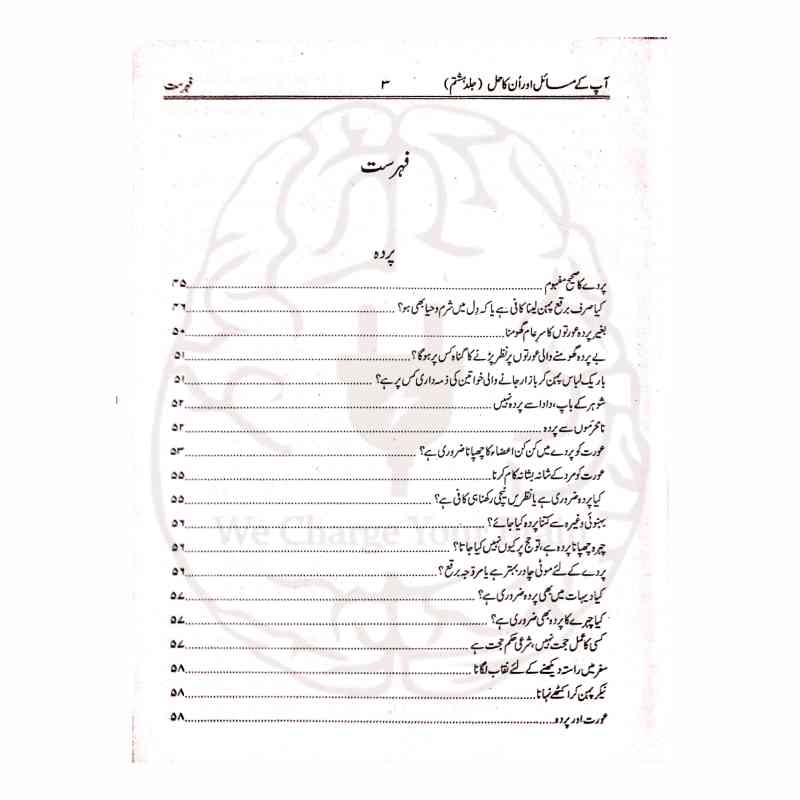 آپ کے مسائل اور اُن کا حل (جلد ہشتم) ۳ فہرست
فہرست
پردہ
پردے کا صحیح مفہوم ۴۵
کیا صرف برقع پہن لینا کافی ہے یا کہ دِل میں شرم و حیا بھی ہو؟ ۴۶
بغیر پردہ عورتوں کا سرِعام گھومنا ۵۰
بے پردہ گھومنے والی عورتوں پر نظر پڑنے کا گناہ کس پر ہوگا؟ ۵۱
باریک لباس پہن کر بازار جانے والی خواتین کی ذمہ داری کس پر ہے؟ ۵۱
شوہر کے باپ، دادا سے پردہ نہیں ۵۲
نامحرَموں سے پردہ ۵۲
عورت کو پردے میں کن کن اعضاء کا چھپانا ضروری ہے؟ ۵۳
عورت کو مرد کے شانہ بشانہ کام کرنا ۵۵
کیا پردہ ضروری ہے یا نظریں نیچی رکھنا ہی کافی ہے؟ ۵۵
بہنوئی وغیرہ سے کتنا پردہ کیا جائے؟ ۵۶
چہرہ چھپانا پردہ ہے، تو حج پر کیوں نہیں کیا جاتا؟ ۵۶
پردے کے لئے موٹی چادر بہتر ہے یا مروّجہ برقع؟ ۵۶
کیا دیہات میں بھی پردہ ضروری ہے؟ ۵۷
کیا چہرے کا پردہ بھی ضروری ہے؟ ۵۷
کسی کا عمل حجت نہیں، شرعی حکم حجت ہے ۵۷
سفر میں راستہ دیکھنے کے لئے نقاب لگانا ۵۸
نیکر پہن کر اکٹھے نہانا ۵۸
عورت اور پردہ ۵۸
We Charge Yo